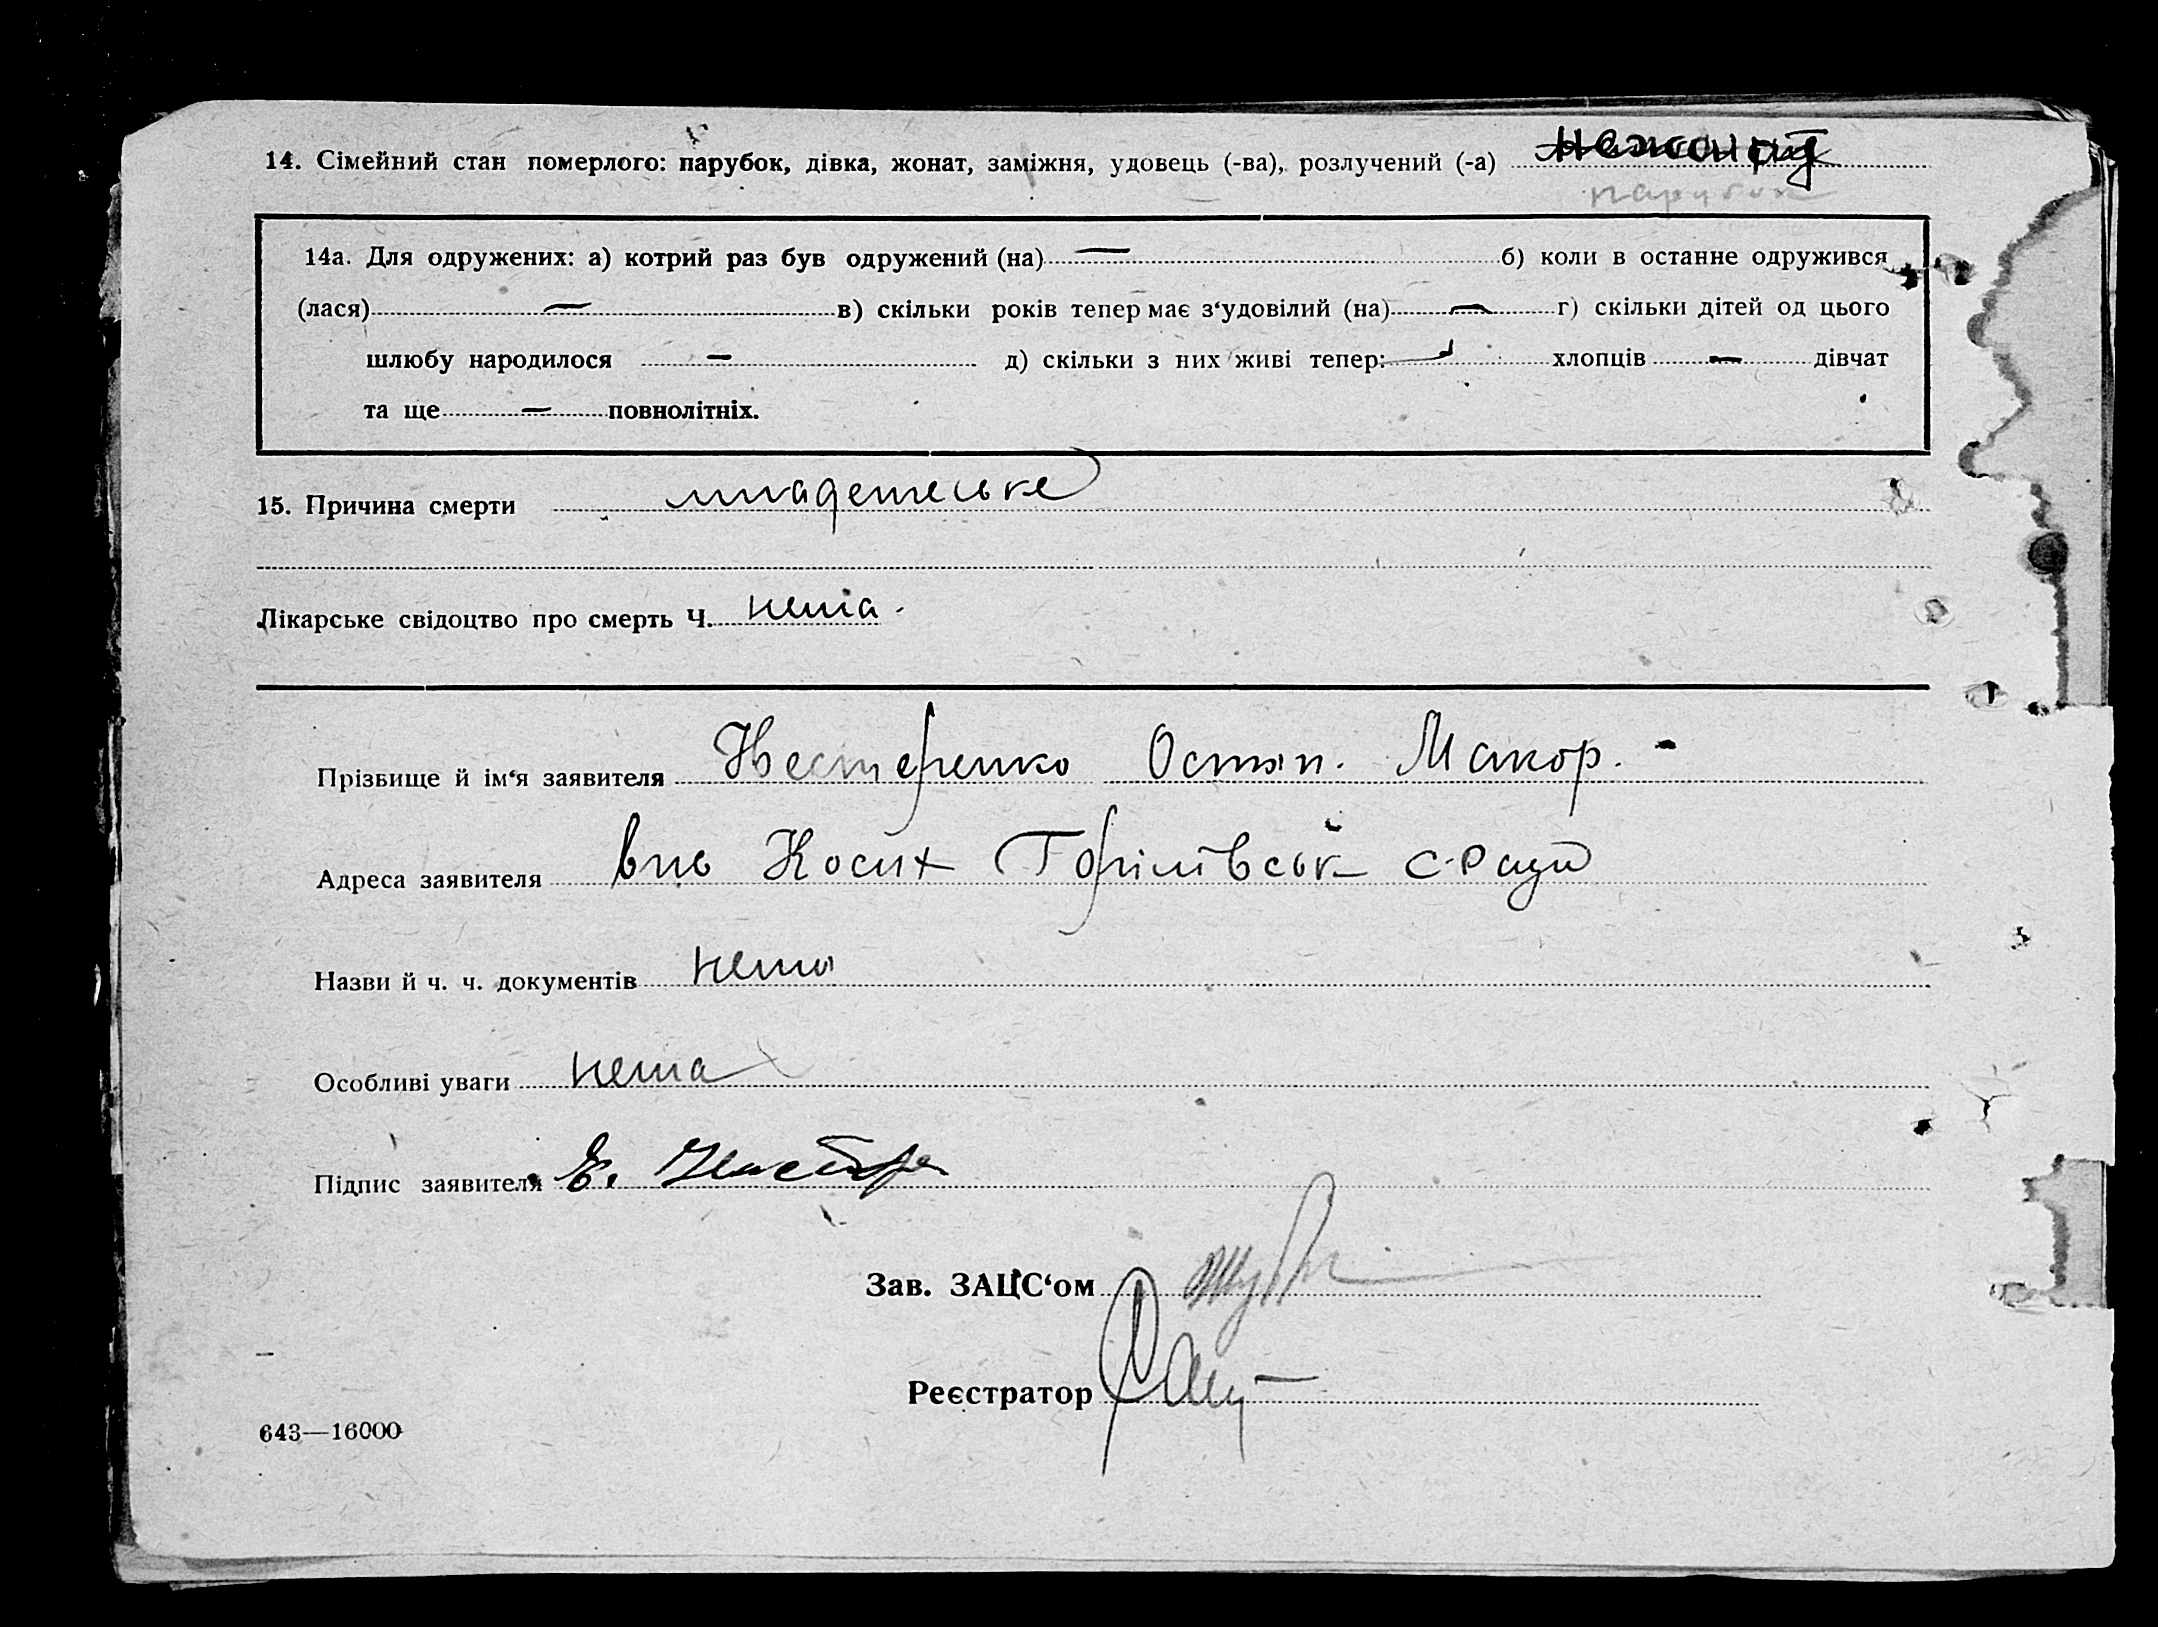 14. Сімейний стан померлого: парубок, дівка, жонат, заміжня, удовець (-ва), розлучений (-а) нежонат
парубок
14а. Для одружених: а) котрий раз був одружений (на) — б) коли в останне одружився
(лася) — в) скільки років тепер має з‘удовілий (на) — г) скільки дітей од цього
шлюбу народилося — д) скільки з них живі тепер: — хлопців — дівчат
та ще — повнолітніх.
15. Причина смерти младетське
Лікарське свідоцтво про смерть Ч. нема.
Прізвище й ім‘я заявителя Нестеренко Остап. Макар. -
Адреса заявителя Косих С-Ради
Назви й ч. ч. документів нема
Особливі уваги нема
Підпис заявителя
Зав. ЗАЦС‘ом
Реєстратор
643—16000